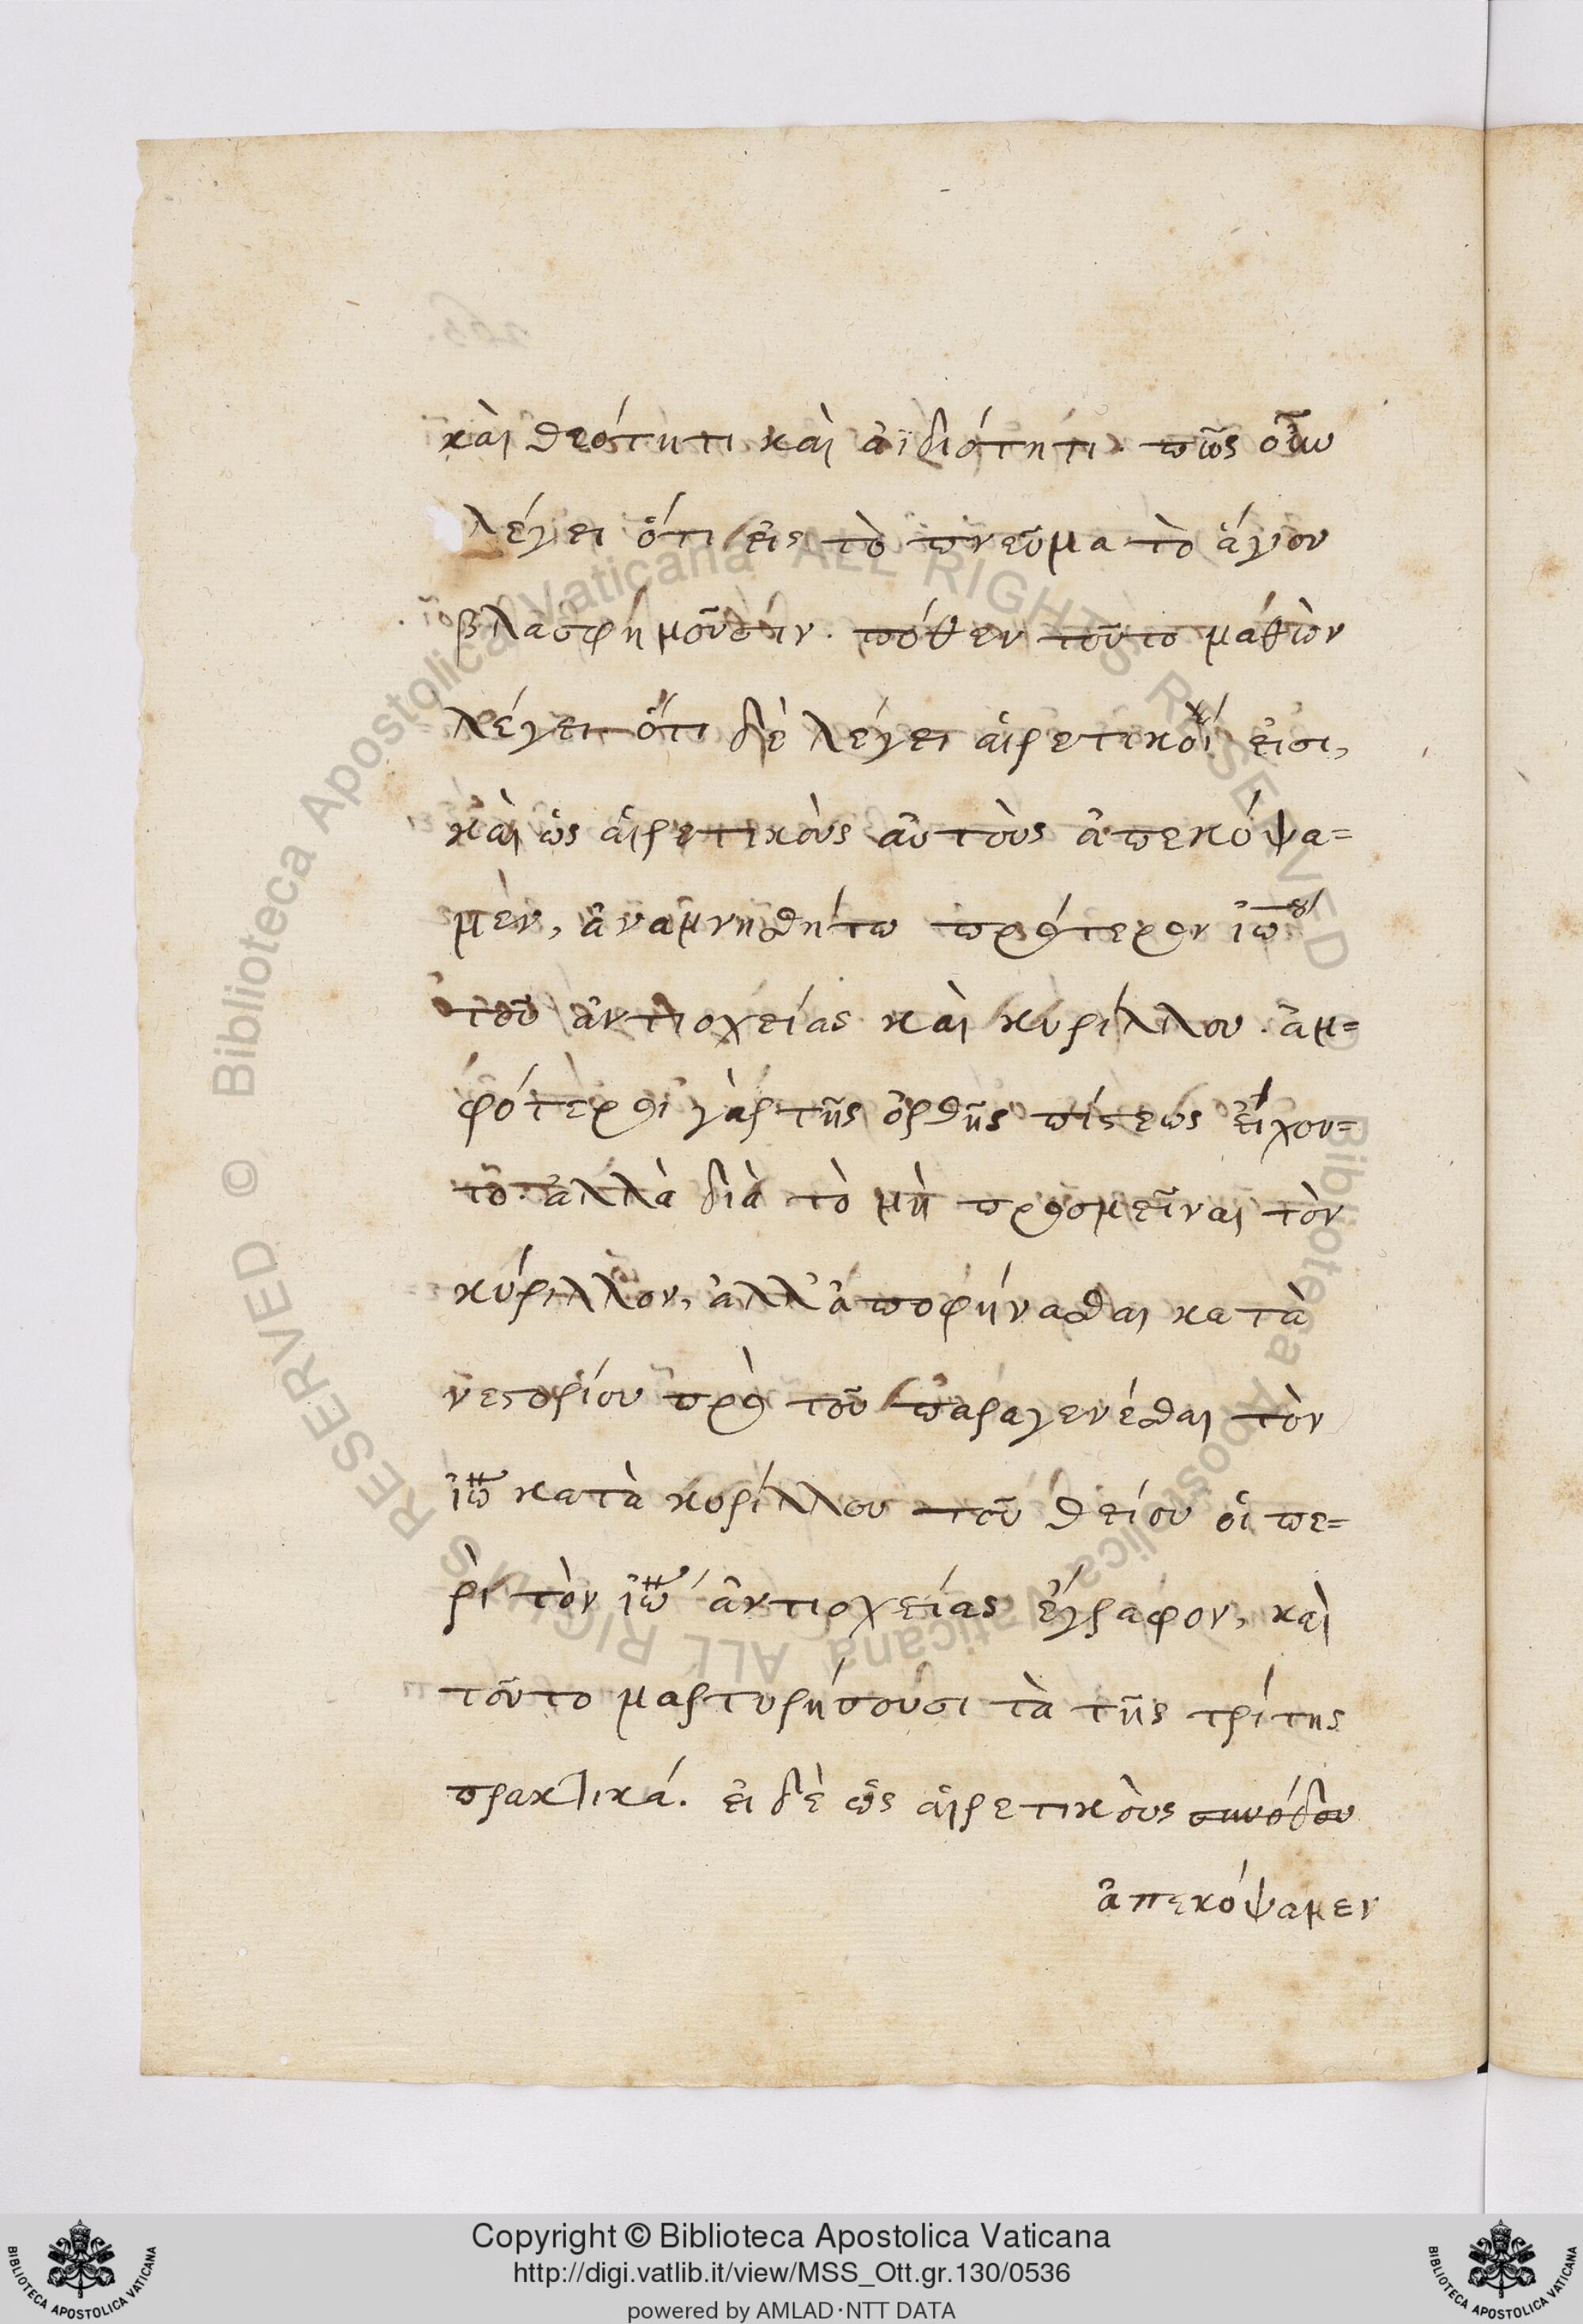 καὶ θεότητι καὶ ἀϊδιότητι. πῶς οὖν
λέγει ὅτι εἰς τὸ πνεῦμα τὸ ἅγιον
βλασφημοῦσιν. πόθεν τοῦτο μαθὼν
λέγει ὅτι δὲ λέγει αἱρετικοί εἰσι,
καὶ ὡς αἱρετικοὺς αὐτοὺς ἀπεκόψα=
μεν, ἀναμνηθήτω πρότερον ἰω
τοῦ ἀντιοχείας καὶ κυρίλλου. ἀμ=
φότεροι γὰρ τῆς ὀρθῆς πίστεως εἴχον=
το. ἀλλὰ διὰ τὸ μὴ προσμεῖναι τὸν
κύριλλον, ἀλλ' ἀποφήνασθαι κατὰ
νεστορίου πρὸ τοῦ παραγενέσθαι τὸν
ἰω κατὰ κυρίλλου τοῦ θείου οἱ πε=
ρὶ τὸν ἰω ἀντιοχείας ἔγραφον, καὶ
τοῦτο μαρτυρήσουσι τὰ τῆς τρίτης
πρακτικά. εἰ δὲ ὡς αἱρετικοὺς συνόδου
ἀπεκόψαμεν
© Biblioteca Apostolica Vaticana ALL RIGHTS RESERVED
Biblioteca Apostolica Vaticana ALL RIGHTS RESERVED
Copyright © Biblioteca Apostolica Vaticana
http://digi.vatlib.it/view/MSS_Ott.gr.130/0536
powered by AMLAD·NTT DATA
BIBLIOTECA APOSTOLICA VATICANA
BIBLIOTECA APOSTOLICA VATICANA